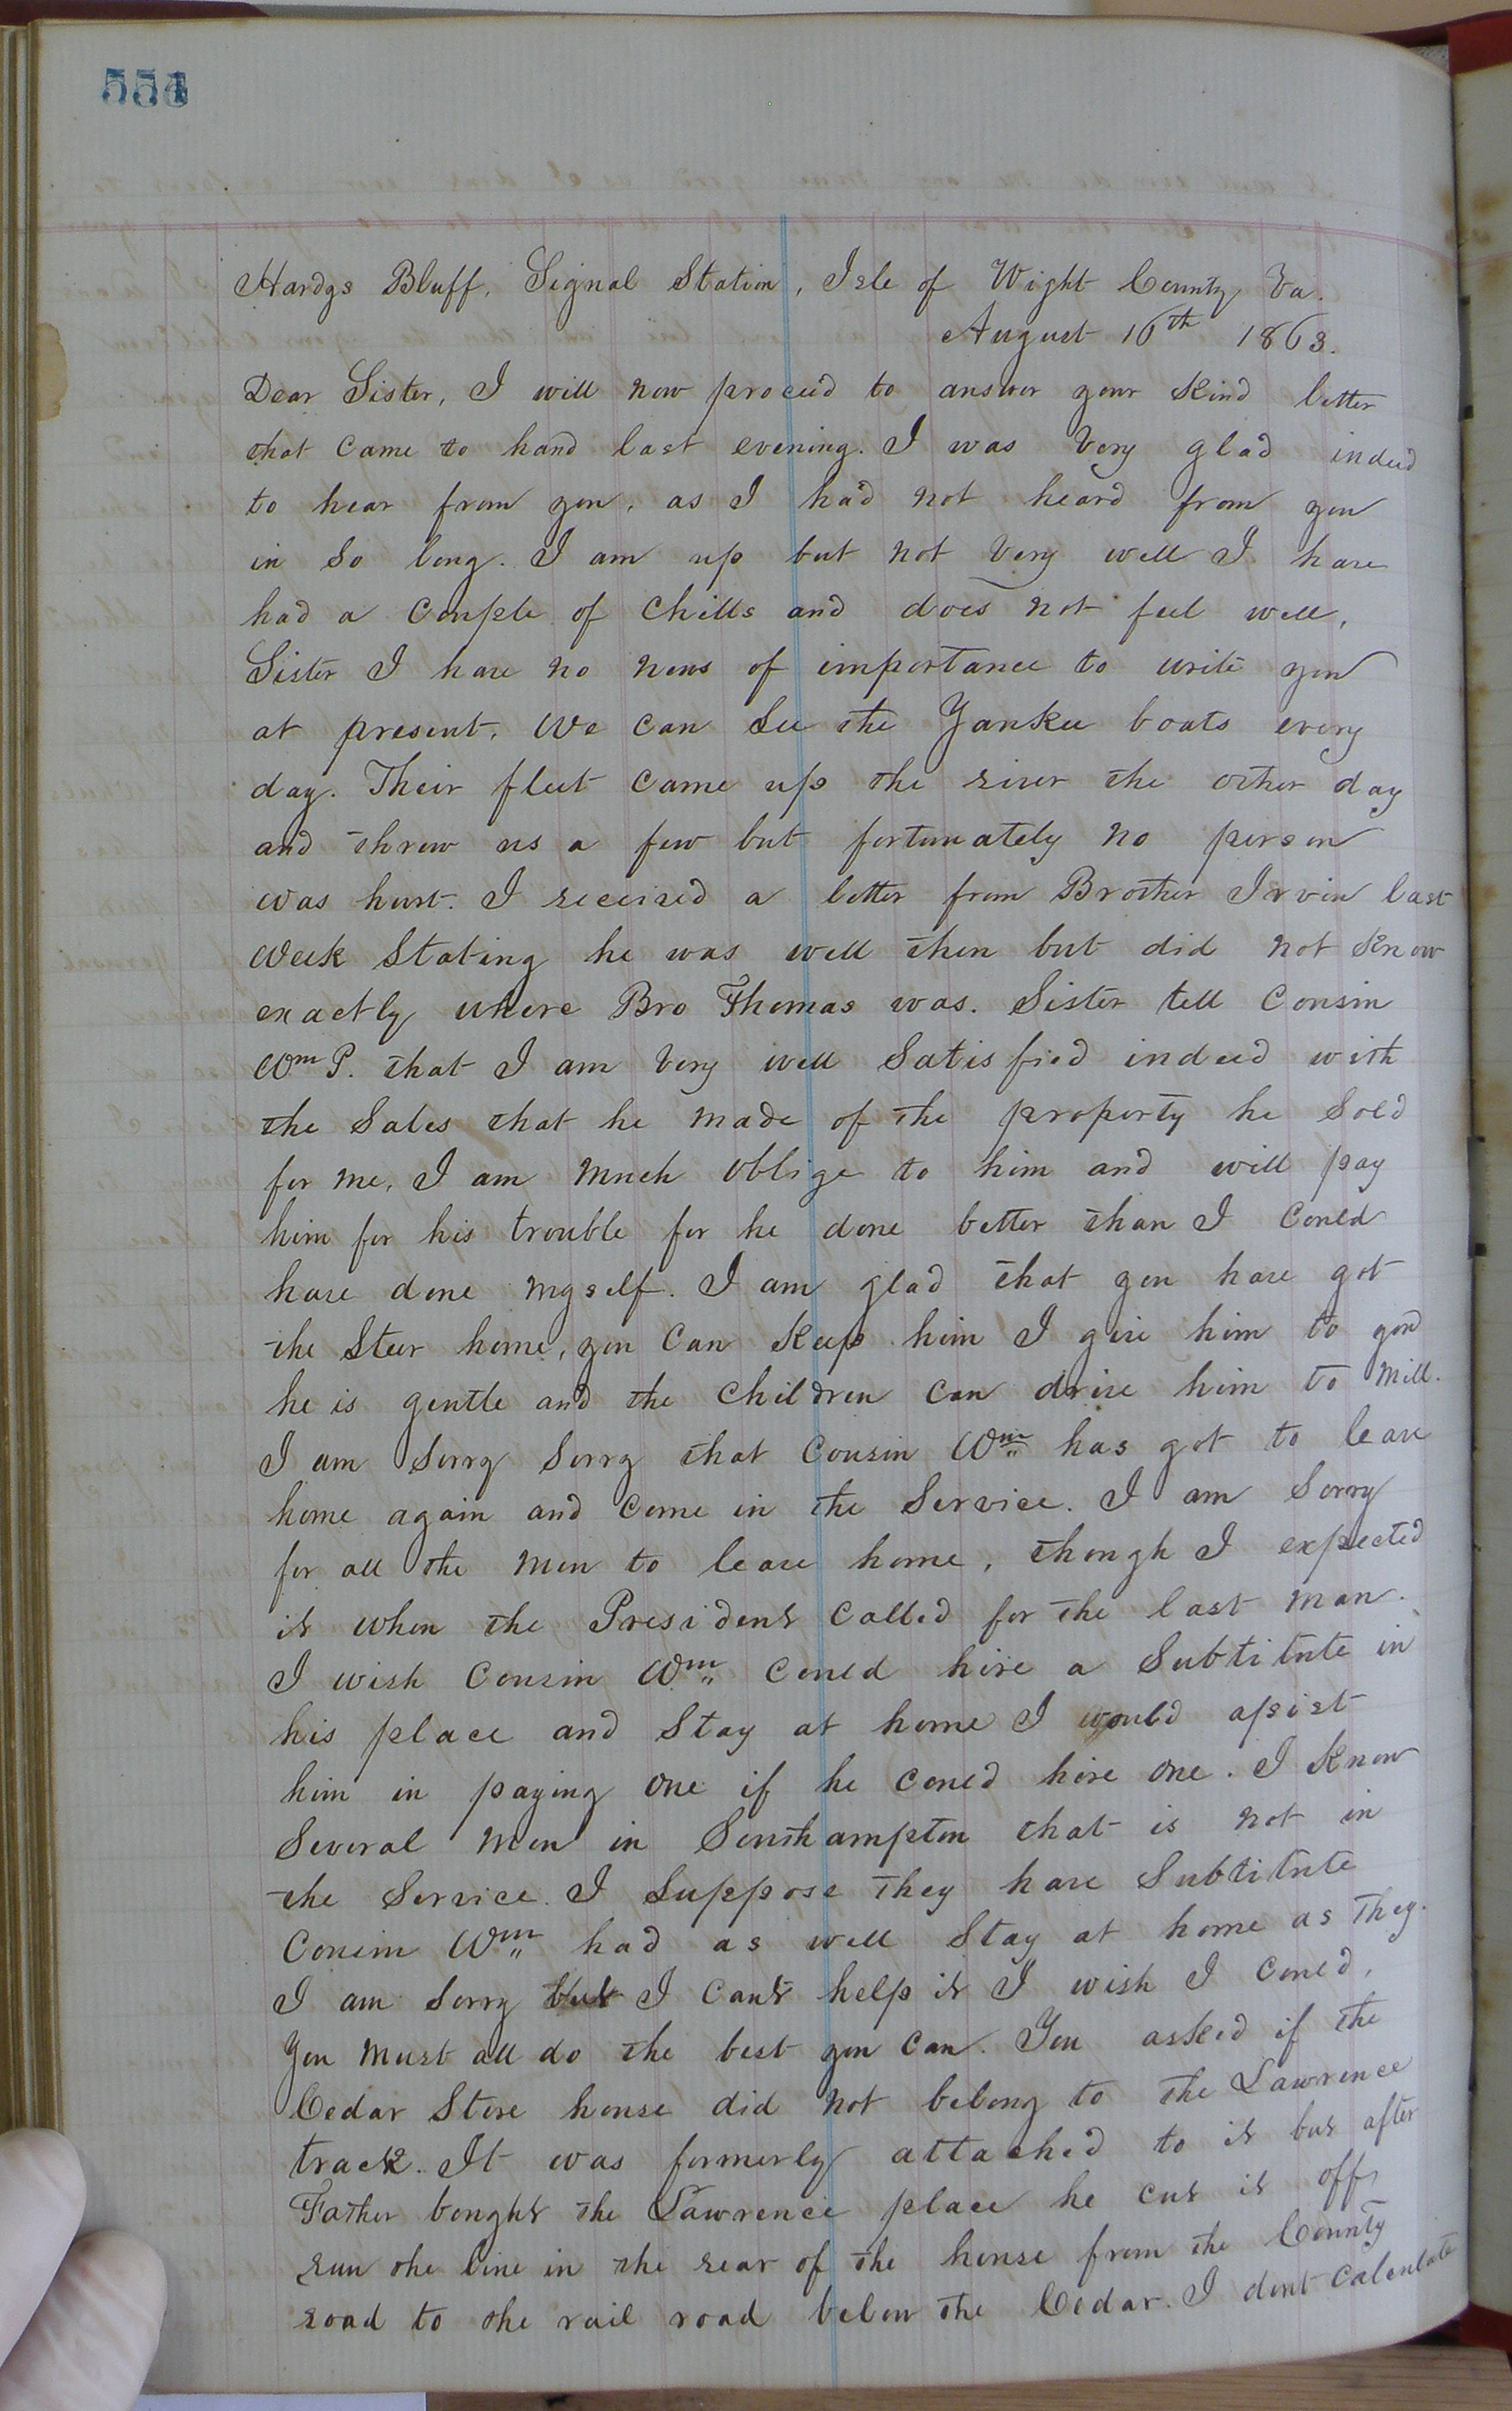 554
Hardys Bluff, Signal Station, Isle of Wight County, Va.
August 16th 1863.
Dear Sister, I will now proceed to answer your kind letter
that came to hand last evening. I was very glad indeed
to hear from you, as I had not heard from you
in so long. I am up but not very well I have
had a couple of chills and does not feel well,
Sister I have no news of importance to write you
at present. We can see the Yankee boats every
day. Their fleet came up the river the other day
and threw us a few but fortunately no person
was hurt. I received a letter from Brother Irvin last
week stating he was well then but did not know
exactly where Bro Thomas was. Sister tell Cousin
Wm P. that I am very well satisfied indeed with
the sales that he made of the property he sold
for me, I am much oblige to him and will pay
him for his trouble for he done better than I could
have done myself. I am glad that you have got
the steer home, you can keep him I give him to you
he is gentle and the children can drive him to mill.
I am sorry sorry that Cousin Wm has got to leave
home again and come in the service. I am sorry
for all the men to leave home, though I expected
it when the President called for the last man.
I wish Cousin Wm could hire a subtitute in
his place and stay at home I would assist
him in paying one if he could hire one. I know
several men in Southampton that is not in
the service. I suppose they have subtitute
Cousin Wm had as well stay at home as they.
I am sorry but I can't help it I wish I could,
You must all do the best you can. You asked if the
Cedar Store house did not belong to the Lawrence
track. It was formerly attached to it but after
Father bought the Lawrence place he cut it off,
run the line in the rear of the house from the County
road to the rail road below the Cedar. I dont calculate